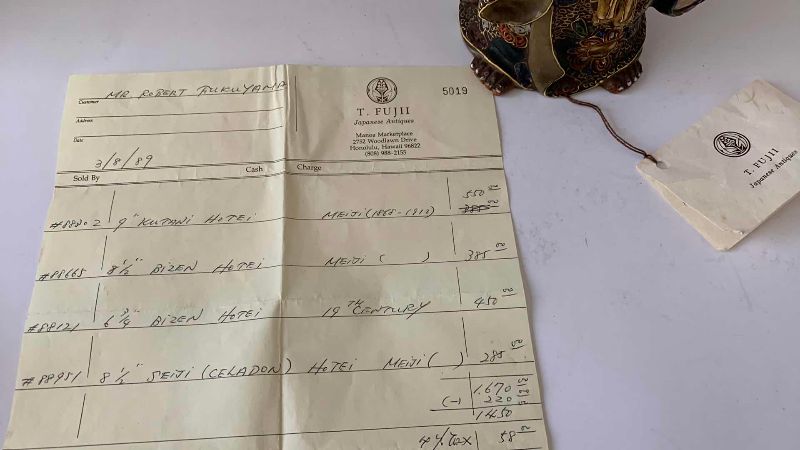 Customer MR. ROBERT FUKUYAMA
Address
Date
3/8/89
5019
T. FUJII
Japanese Antiques
Manoa Marketplace
2752 Woodlawn Drive
Honolulu, Hawaii 96822
(808) 988-2155
Sold By Cash Charge
#88802 9" KUTANI HOTEI MEIJI (1868-1912) 550.00 385.00
#88665 8 1/2" BIZEN HOTEI MEIJI ( ) 385.00
#88121 6 3/4" BIZEN HOTEI 19TH CENTURY 450.00
#88951 8 1/2" SEIJI (CELADON) HOTEI MEIJI ( ) 285.00
1,670.00
(-) 220.00
1450
4% TAX 58.00
T. FUJII
Japanese Antiques